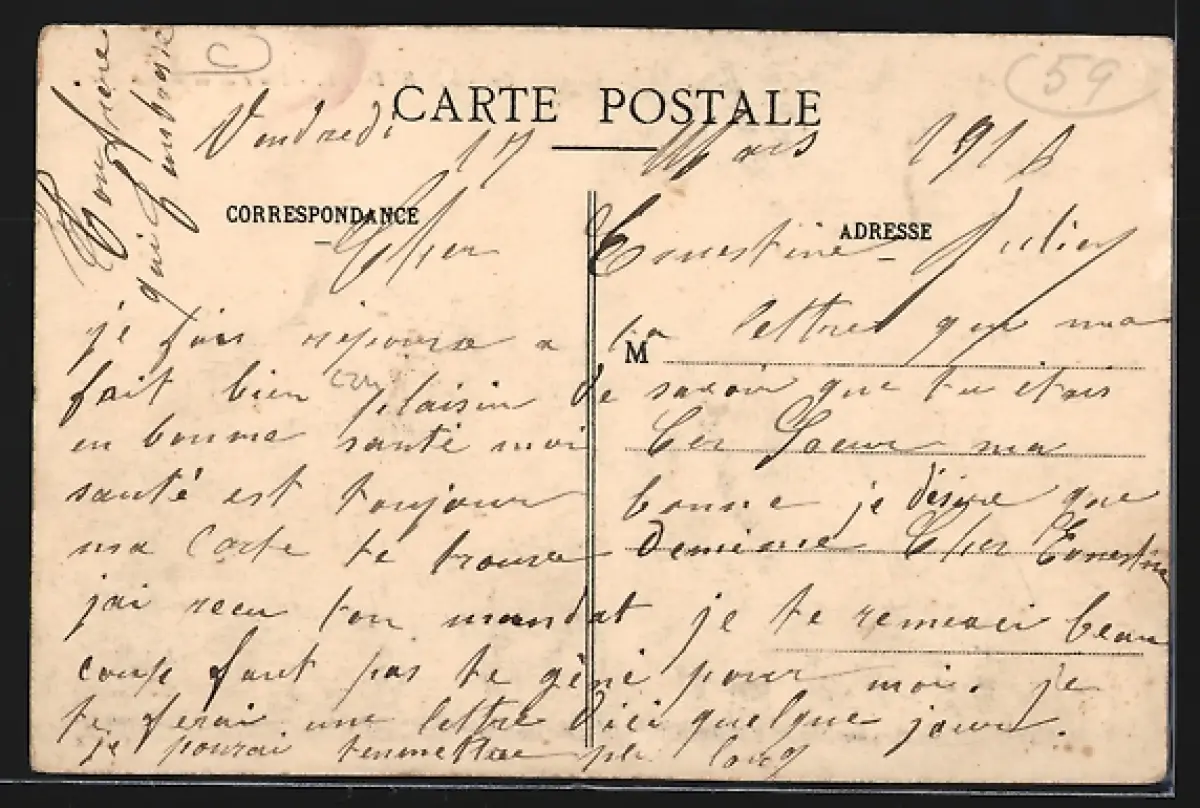 C
59
CARTE POSTALE
Vendredi 17 Mars 191
CORRESPONDANCE
ADRESSE
Cher Ernestine Julien
M
je fais réponse a ta lettre qui ma
fait bien plaisir de savoir que tu étais
en bonne santé moi Cer Soeur ma
santé est toujour bonne je désire que
ma Carte te trouve demème Cher Ernestine
jai recu ton mandat je te remerci beau
coup faut pas te gêné pour moi. je
te ferai une lettre dici quelque jour.
je pourai tenmettre plu long
Ton frère
qui